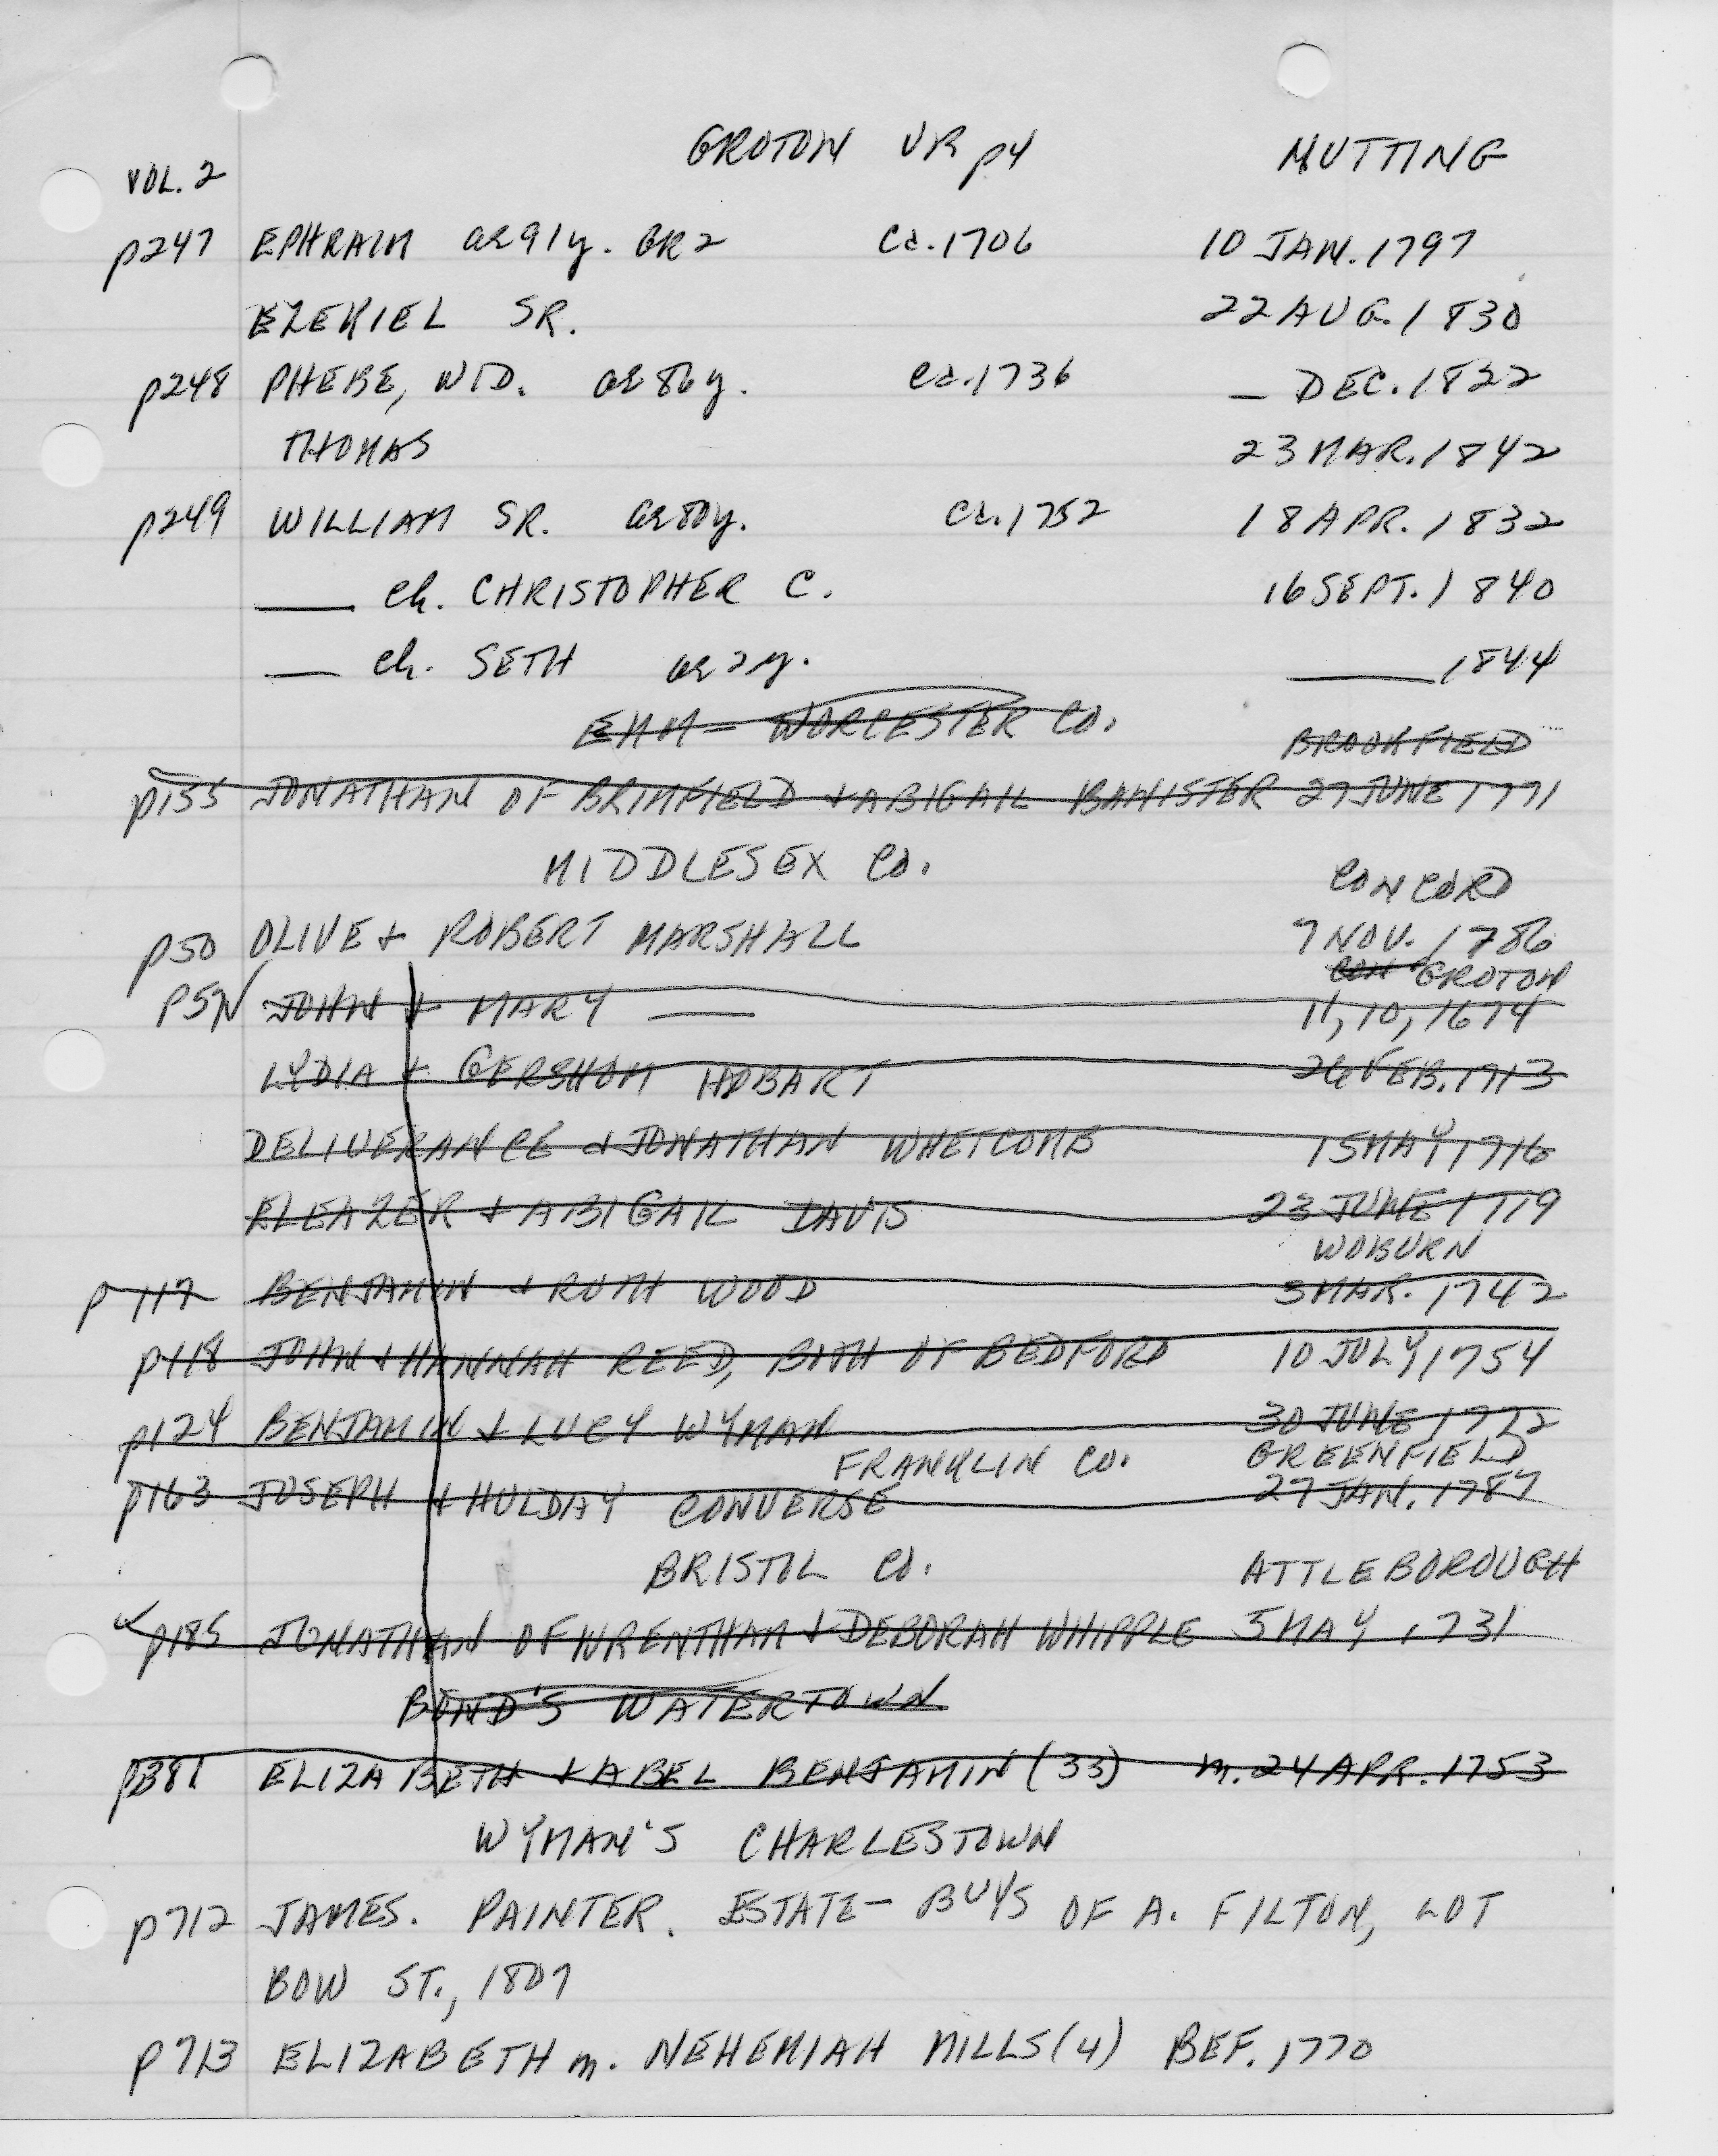 GROTON VR p4 NUTTING
VOL. 2
p247 EPHRAIM ae 91y. GR2 ca. 1706 10 JAN. 1797
EZEKIEL SR. 22 AUG. 1830
p248 PHEBE, WID. ae 86y. ca. 1736 — DEC. 1822
THOMAS 23 MAR. 1842
p249 WILLIAM SR. ae 80y. ca. 1752 18 APR. 1832
— ch. CHRISTOPHER C. 16 SEPT. 1840
— ch. SETH ae 2y. — 1844
EMM – WORCESTER CO. BROOKFIELD
p155 JONATHAN OF BRIMFIELD + ABIGAIL BANISTER 27 JUNE 1771
MIDDLESEX CO. CONCORD
p50 OLIVE + ROBERT MARSHALL 7 NOV. 1786
CON GROTON
p57 JOHN + MARY — 11, 10, 1674
LYDIA + GERSHOM HOBART 26 FEB. 1713
DELIVERANCE + JONATHAN WHETCOMB 15 MAY 1716
ELEAZER + ABIGAIL DAVIS 23 JUNE 1719
WOBURN
p117 BENJAMIN + RUTH WOOD 3 MAR. 1742
p118 JOHN + HANNAH REED, BOTH OF BEDFORD 10 JULY 1754
p124 BENJAMIN + LUCY WYMAN 30 JUNE 1772
FRANKLIN CO. GREENFIELD
p163 JOSEPH + HULDAY CONVERSE 27 JAN. 1787
BRISTOL CO. ATTLEBOROUGH
✓ p185 JONATHAN OF WRENTHAM + DEBORAH WHIPPLE 5 MAY 1731
BOND'S WATERTOWN
p381 ELIZABETH + ABEL BENJAMIN (33) m. 24 APR. 1753
WYMAN'S CHARLESTOWN
p712 JAMES. PAINTER. ESTATE – BUYS OF A. FILTON, LOT
BOW ST., 1807
p713 ELIZABETH m. NEHEMIAH MILLS (4) BEF. 1770